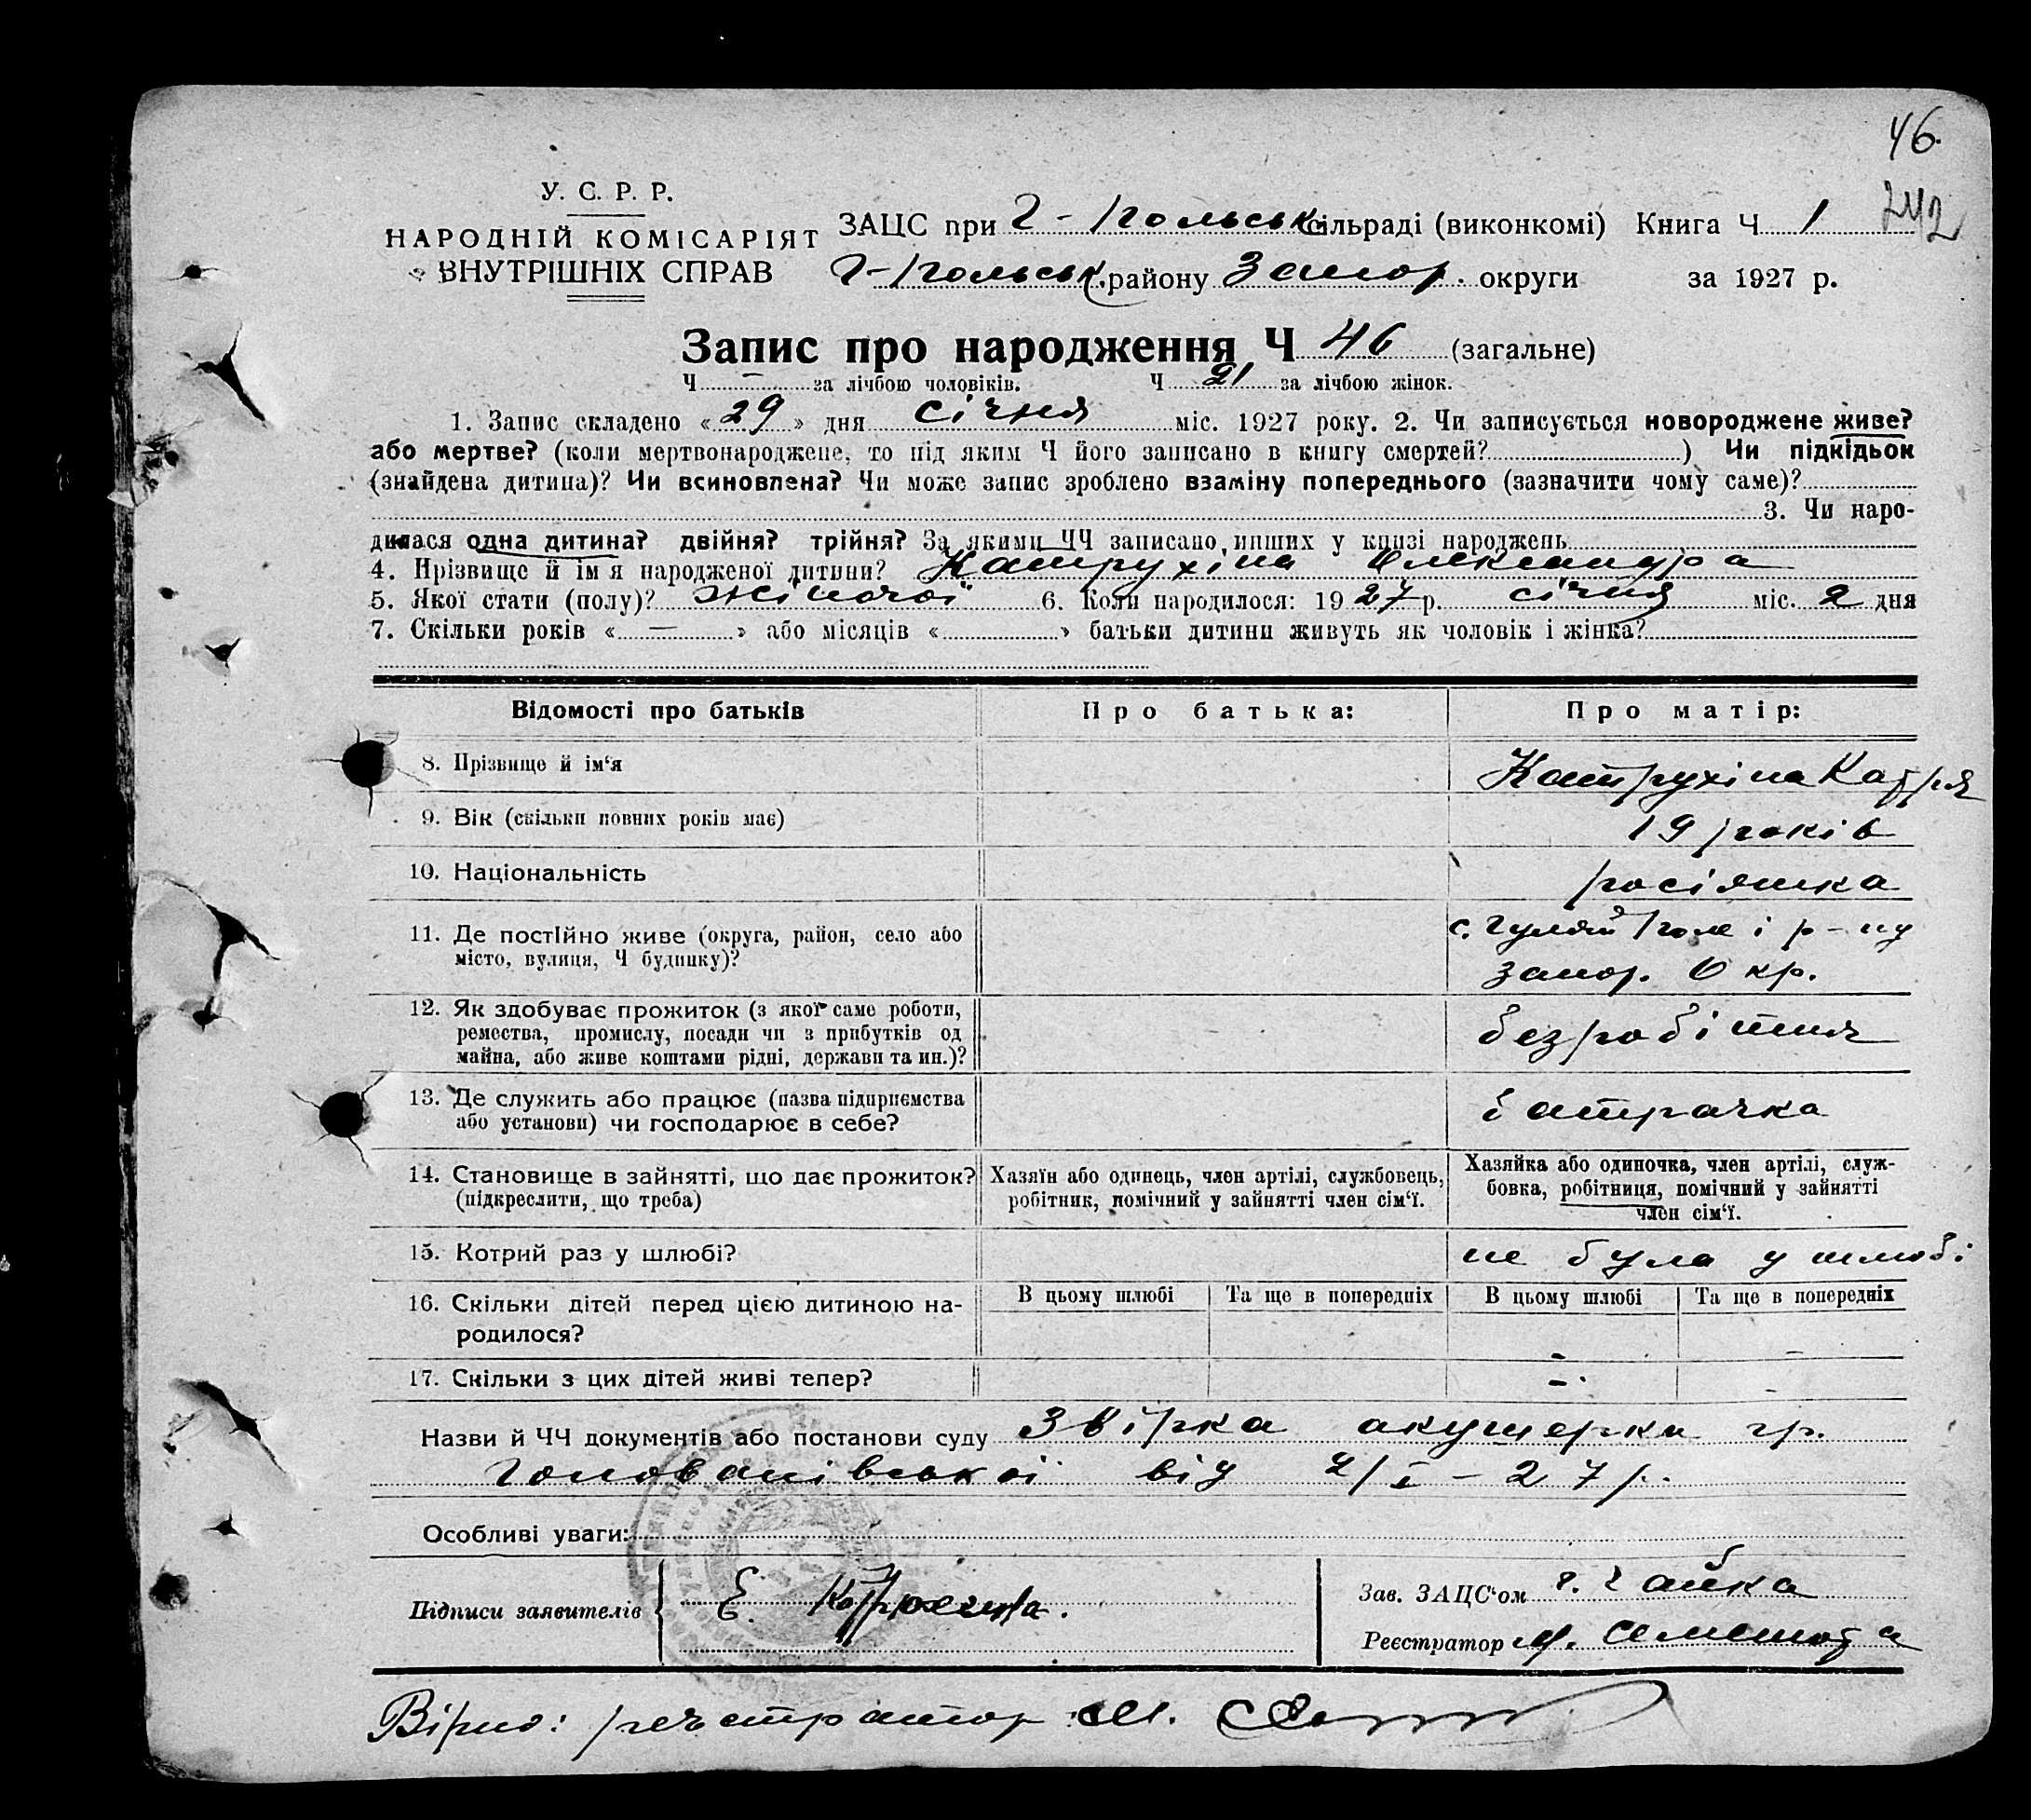 46.
242
У. С. Р. Р.
НАРОДНІЙ КОМІСАРІЯТ
ВНУТРІШНІХ СПРАВ
ЗАЦС при Г-Польськ сільраді (виконкомі) Книга Ч 1
Г-Польськ. району Запор. округи за 1927 р.
Запис про народження Ч 46 (загальне)
Ч — за лічбою чоловіків. Ч 21 за лічбою жінок.
1. Запис складено «29» дня січня міс. 1927 року. 2. Чи записується новороджене живе?
або мертве? (коли мертвонароджене, то під яким Ч його записано в книгу смертей? ) Чи підкідьок
(знайдена дитина)? Чи всиновлена? Чи може запис зроблено взаміну попереднього (зазначити чому саме)?
3. Чи наро-
дилася одна дитина? двійня? трійня? За якими ЧЧ записано инших у книзі народжень
4. Прізвище й ім я народженої дитини? Катрухіна Олександра
5. Якої стати (полу)? жіночої 6. Коли народилося: 1927 р. січня міс. 2 дня
7. Скільки років «—» або місяців « » батьки дитини живуть як чоловік і жінка?
Відомості про батьків Про батька: Про матір:
8. Прізвище й ім‘я Катрухіна Катря
9. Вік (скільки повних років має) 19 років
10. Національність росіянка
11. Де постійно живе (округа, район, село або
місто, вулиця, Ч будинку)?
с. Гуляй Поле і р-ну
Запор. Окр.
12. Як здобуває прожиток (з якої саме роботи,
ремества, промислу, посади чи з прибутків од
майна, або живе коштами рідні, держави та ин.)?
безробітня
13. Де служить або працює (назва підприємства
або установи) чи господарює в себе?
батрачка
14. Становище в зайнятті, що дає прожиток?
(підкреслити, що треба)
Хазяїн або одинець, член артілі, службовець,
робітник, помічний у зайнятті член сім‘ї.
Хазяйка або одиночка, член артілі, служ-
бовка, робітниця, помічний у зайнятті
член сім‘ї.
15. Котрий раз у шлюбі? не була у шлюбі
16. Скільки дітей перед цією дитиною на-
родилося?
В цьому шлюбі Та ще в попередніх В цьому шлюбі Та ще в попередніх
- -
17. Скільки з цих дітей живі тепер? - -
Назви й ЧЧ документів або постанови суду Звірка акушерки гр.
Голованівської від 2/I-27 р.
Особливі уваги:
Підписи заявителів Е. Катрюхина.
Зав. ЗАЦС‘ом Чайка
Реєстратор М.
Вірно: реєстратор М.